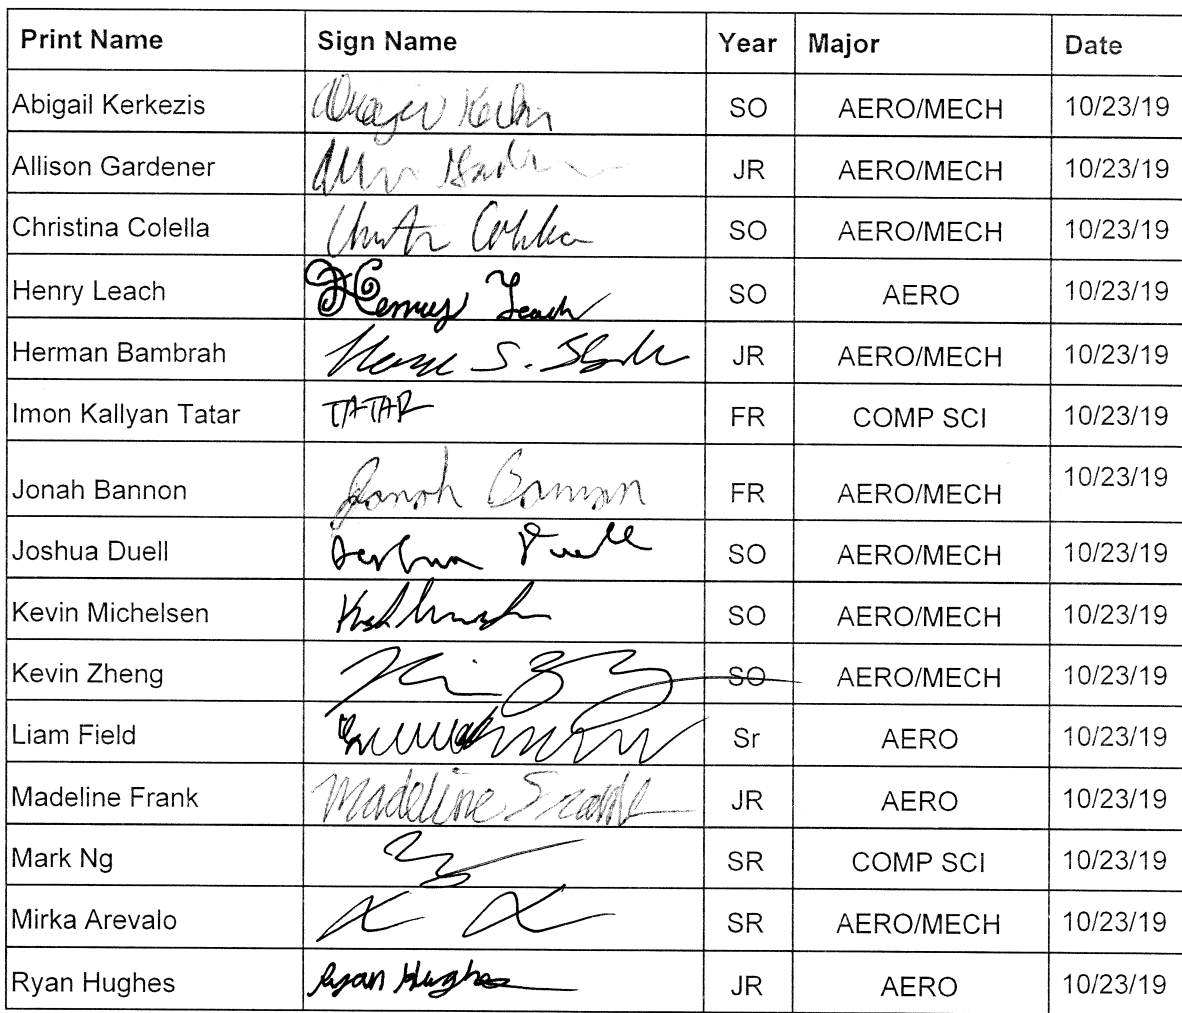 Print Name Sign Name Year Major Date
Abigail Kerkezis SO AERO/MECH 10/23/19
Allison Gardener JR AERO/MECH 10/23/19
Christina Colella SO AERO/MECH 10/23/19
Henry Leach Henry Leach SO AERO 10/23/19
Herman Bambrah JR AERO/MECH 10/23/19
Imon Kallyan Tatar TATAR FR COMP SCI 10/23/19
Jonah Bannon Jonah Bannon FR AERO/MECH 10/23/19
Joshua Duell Joshua Duell SO AERO/MECH 10/23/19
Kevin Michelsen SO AERO/MECH 10/23/19
Kevin Zheng SO AERO/MECH 10/23/19
Liam Field Sr AERO 10/23/19
Madeline Frank Madeline Frank JR AERO 10/23/19
Mark Ng SR COMP SCI 10/23/19
Mirka Arevalo SR AERO/MECH 10/23/19
Ryan Hughes Ryan Hughes JR AERO 10/23/19